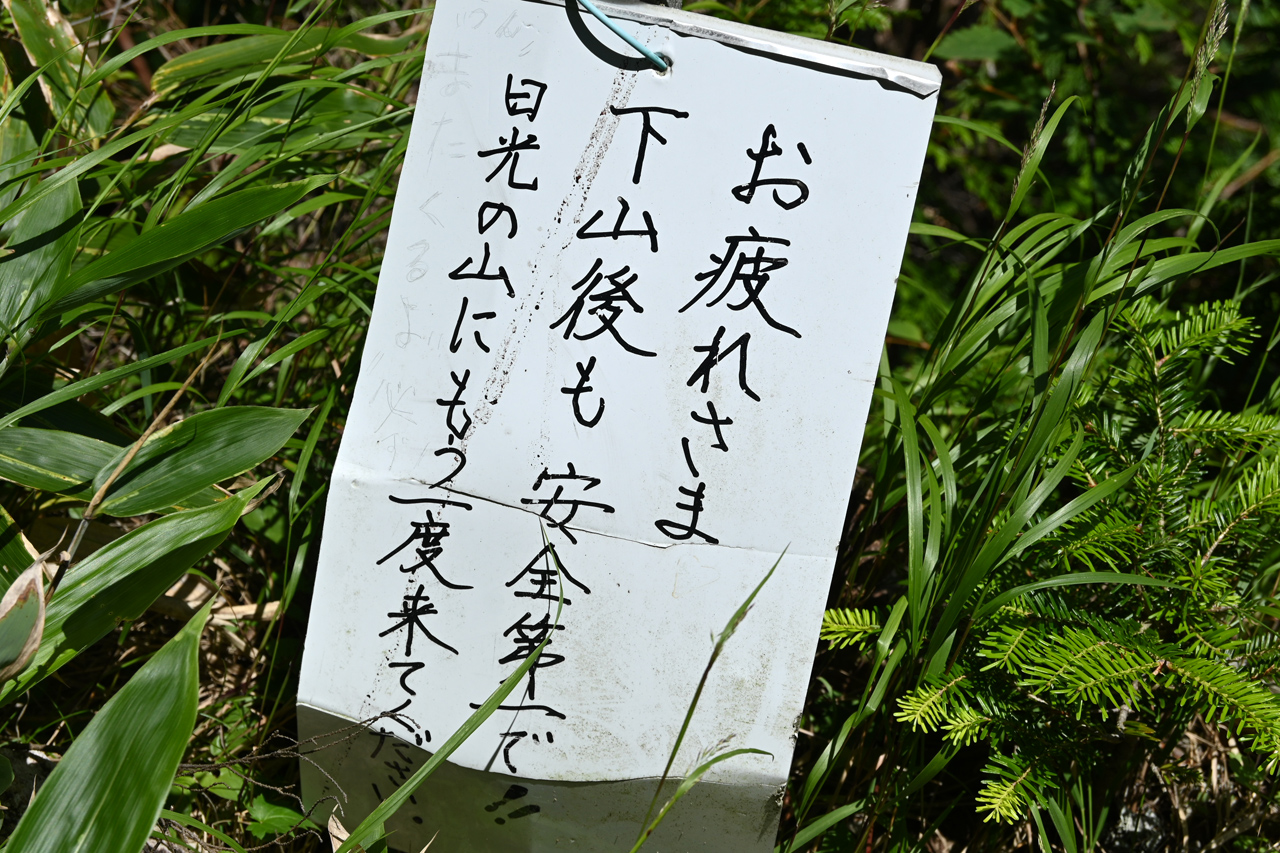 お疲れさま
下山後も安全第一で!!
日光の山にもう一度来てください.
またくるよ